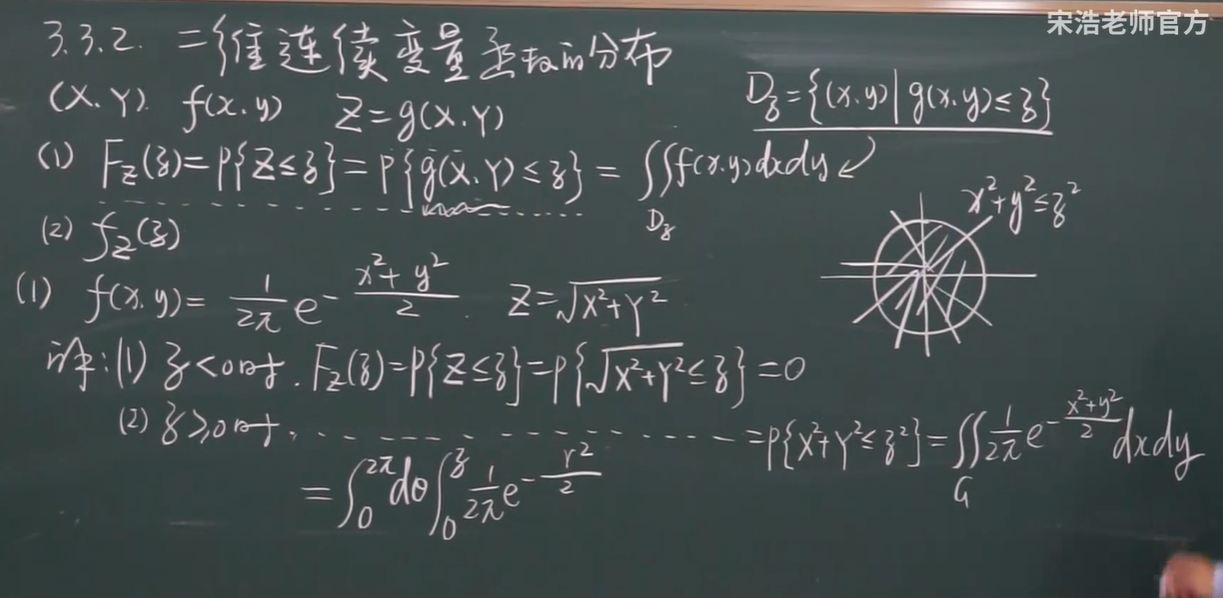 宋浩老师官方
3.3.2. 二维连续变量函数的分布
(X.Y). f(x.y) Z=g(X.Y)
D_z={(x.y)|g(x.y)≤z}
(1) F_Z(z)=P{Z≤z}=P{g(X.Y)≤z}=∬_{D_z} f(x.y)dxdy
x²+y²≤z²
(2) f_Z(z)
(1) f(x.y)= 1/2π e^{-(x²+y²)/2}. Z=√(X²+Y²)
解:(1) z<0时. F_Z(z)=P{Z≤z}=P{√(X²+Y²)≤z}=0
(2) z≥0时. - - - - - - =P{X²+Y²≤z²}=∬_G 1/2π e^{-(x²+y²)/2}dxdy
=∫_0^{2π}dθ∫_0^z 1/2π e^{-r²/2}